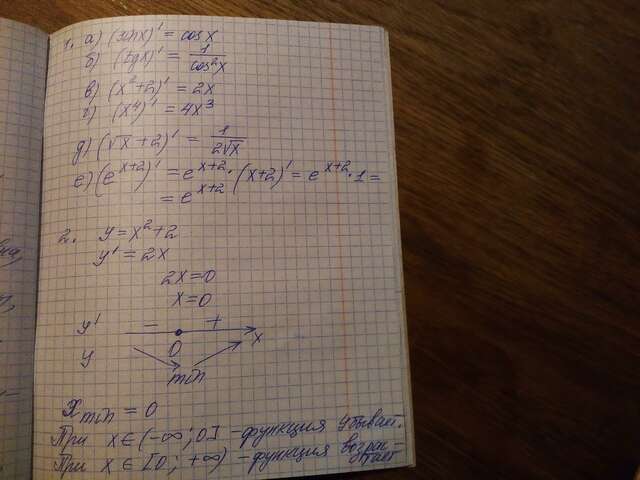 1. а) (sin x)' = cos x
б) (tg x)' = 1/cos²x
в) (x²+2)' = 2x
г) (x⁴)' = 4x³
д) (√x + 2)' = 1/2√x
е) (e^x+2)' = e^x+2 · (x+2)' = e^x+2 · 1 =
= e^x+2
2. y = x² + 2
y' = 2x
2x = 0
x = 0
y' − +
y 0 x
min
x min = 0
При x ∈ (-∞; 0] - функция убывает.
При x ∈ [0; +∞) - функция возрас-
тает